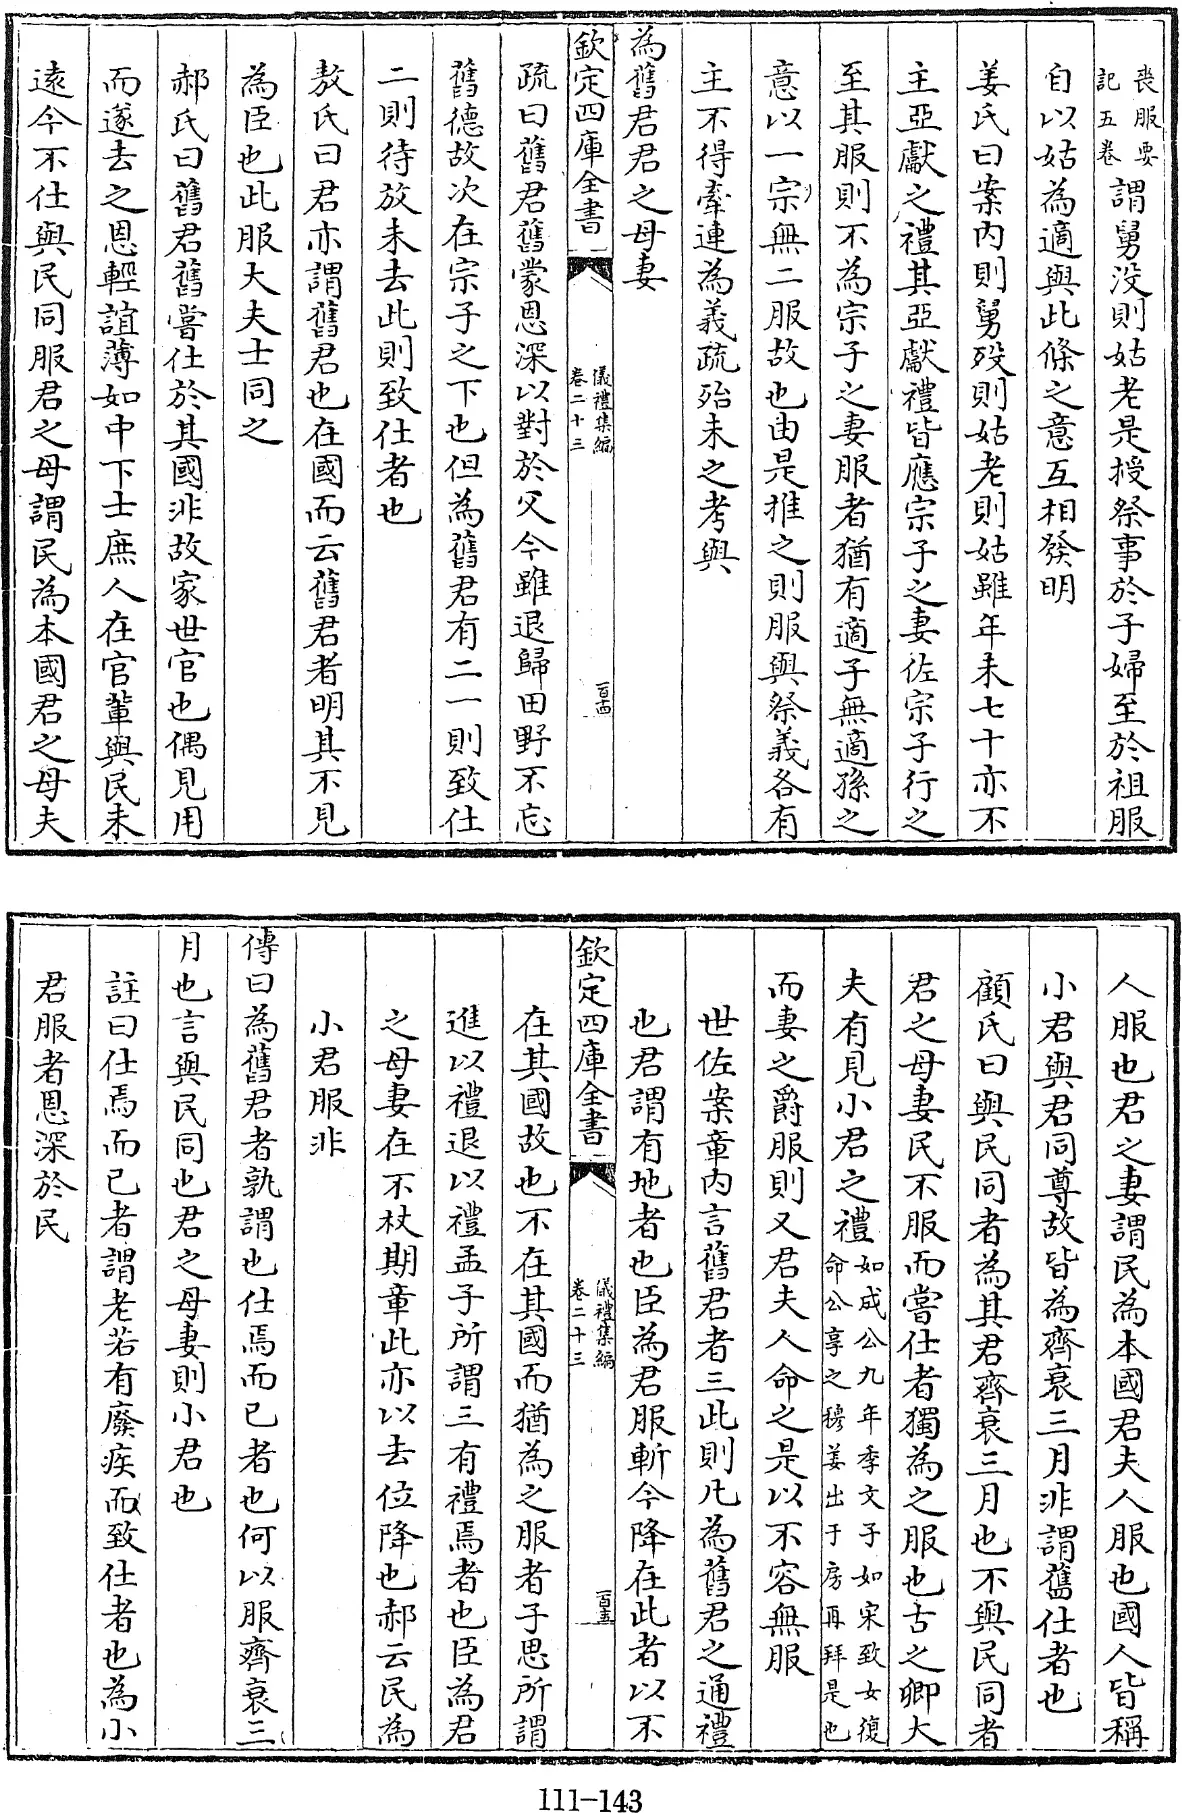 喪服要記五卷謂舅没則姑老是授祭事於子婦至於祖服
自以姑為適與此條之意互相發明
姜氏曰案内則舅殁則姑老則姑雖年未七十亦不
主亞獻之禮其亞獻禮皆應宗子之妻佐宗子行之
至其服則不為宗子之妻服者猶有適子無適孫之
意以一宗無二服故也由是推之則服與祭義各有
主不得牽連為義疏殆未之考與
為舊君君之母妻
欽定四庫全書
儀禮集編
卷二十三
百四
疏曰舊君舊蒙恩深以對於父今雖退歸田野不忘
舊德故次在宗子之下也但為舊君有二一則致仕
二則待放未去此則致仕者也
敖氏曰君亦謂舊君也在國而云舊君者明其不見
為臣也此服大夫士同之
郝氏曰舊君舊嘗仕於其國非故家世官也偶見用
而遂去之恩輕誼薄如中下士庶人在官輩與民未
遠今不仕與民同服君之母謂民為本國君之母夫
人服也君之妻謂民為本國君夫人服也國人皆稱
小君與君同尊故皆為齊衰三月非謂舊仕者也
顧氏曰與民同者為其君齊衰三月也不與民同者
君之母妻民不服而嘗仕者獨為之服也古之卿大
夫有見小君之禮如成公九年季文子如宋致女復命公享之穆姜出于房再拜是也
而妻之爵服則又君夫人命之是以不容無服
世佐案章内言舊君者三此則凡為舊君之通禮
也君謂有地者也臣為君服斬今降在此者以不
欽定四庫全書
儀禮集編
卷二十三
百五
在其國故也不在其國而猶為之服者子思所謂
進以禮退以禮孟子所謂三有禮焉者也臣為君
之母妻在不杖期章此亦以去位降也郝云民為
小君服非
傳曰為舊君者孰謂也仕焉而已者也何以服齊衰三
月也言與民同也君之母妻則小君也
註曰仕焉而已者謂老若有廢疾而致仕者也為小
君服者恩深於民
111-143